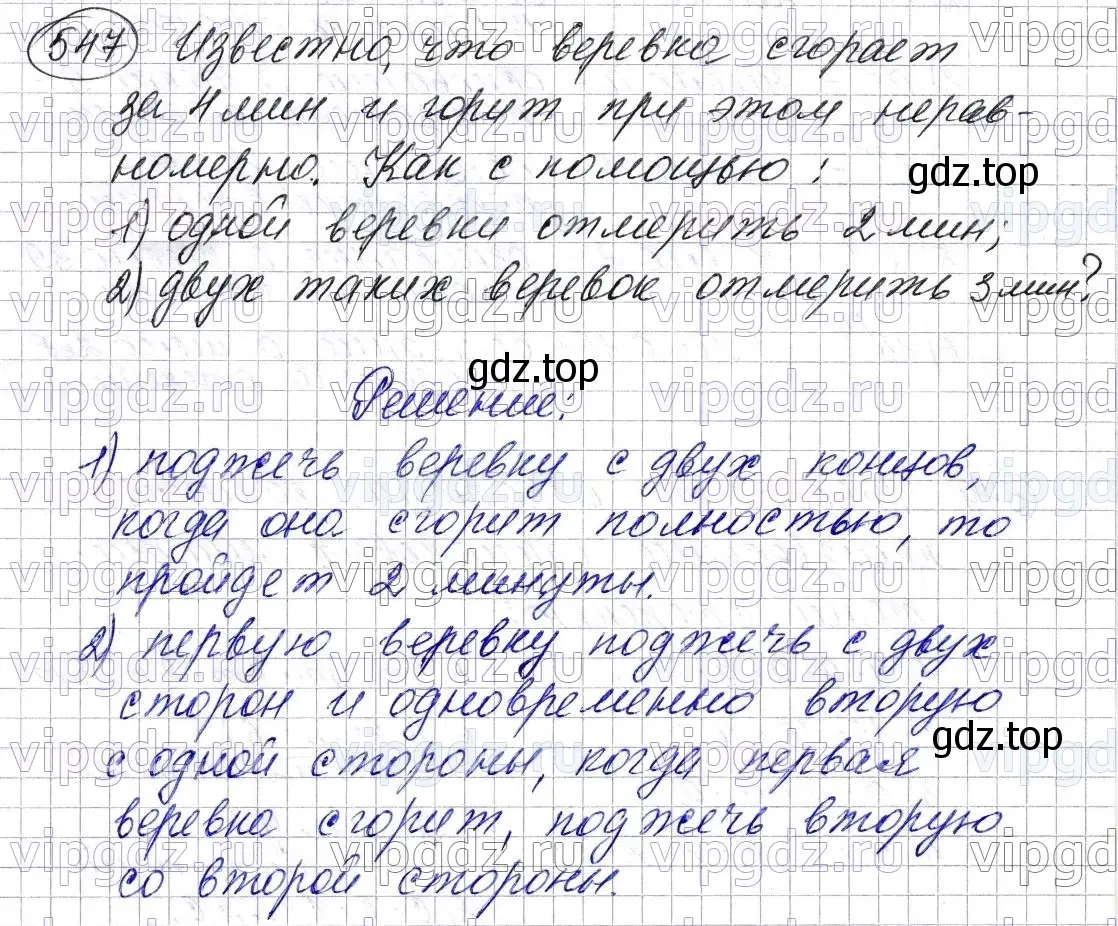 547 Известно, что веревка сгорает
за 4 мин и горит при этом нерав-
номерно. Как с помощью:
gdz.top
1) одной веревки отмерить 2 мин;
2) двух таких веревок отмерить 3 мин?
gdz.top
Решение:
1) поджечь веревку с двух концов,
когда она сгорит полностью, то
пройдет 2 минуты.
2) первую веревку поджечь с двух
сторон и одновременно вторую
gdz.top
с одной стороны, когда первая
веревка сгорит, поджечь вторую
со второй стороны.
vipgdz.ru